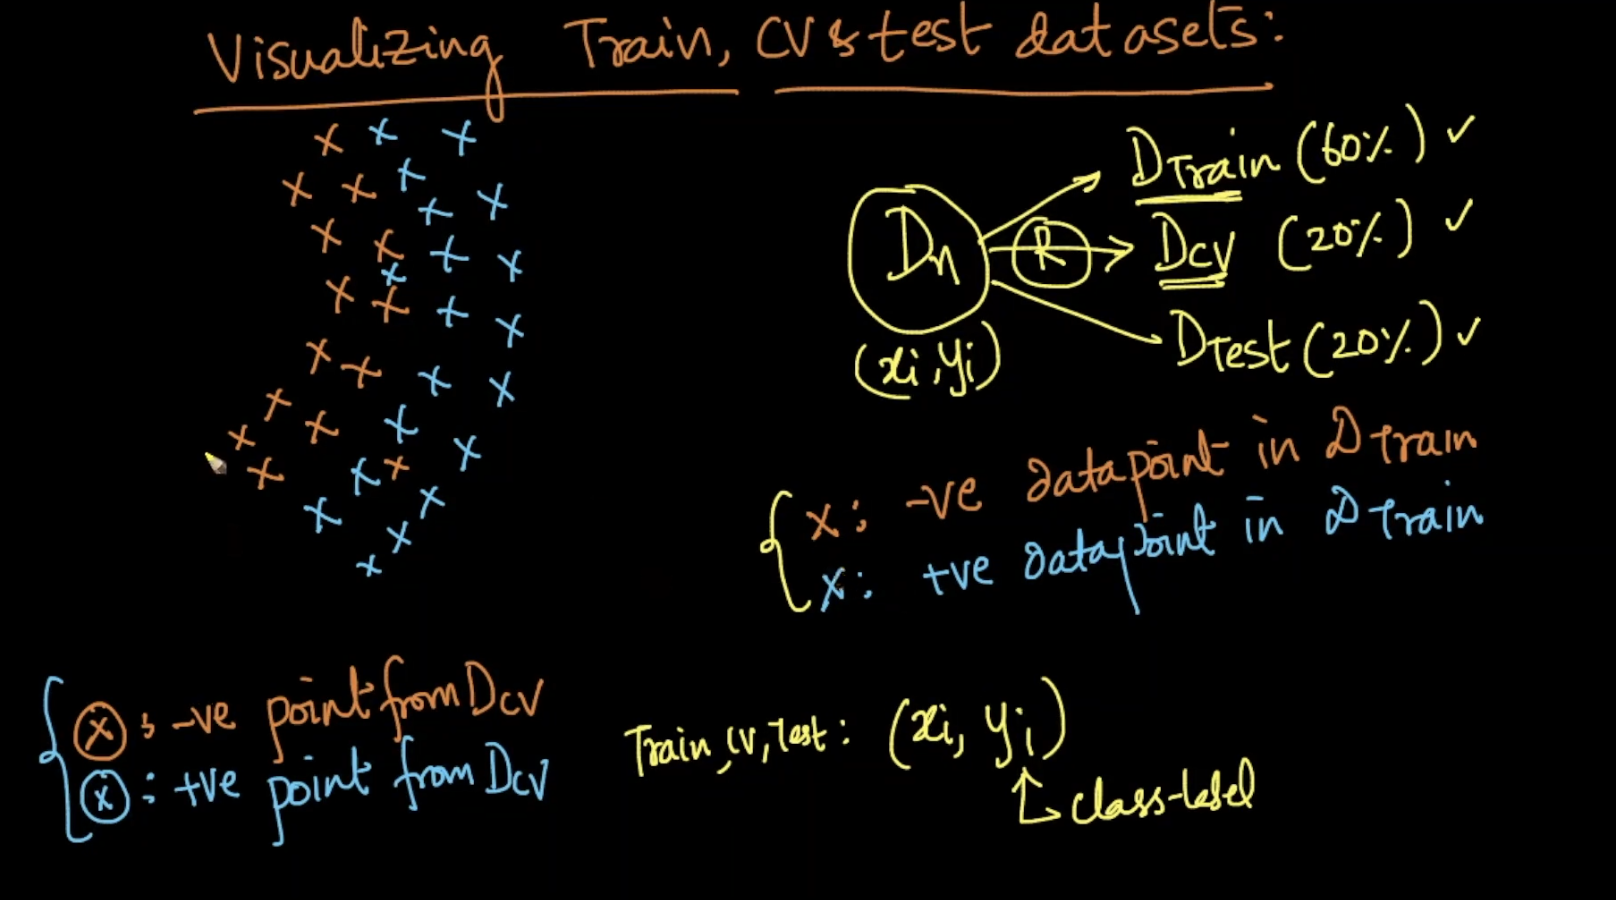 Visualizing Train, CV & test datasets:
DTrain (60%) ✓
Dn
R
DCV (20%) ✓
DTest (20%) ✓
(xi, yi)
x: -ve datapoint in DTrain
x: +ve datapoint in DTrain
x: -ve point from DCV
x: +ve point from DCV
Train, CV, Test: (xi, yi)
class-label